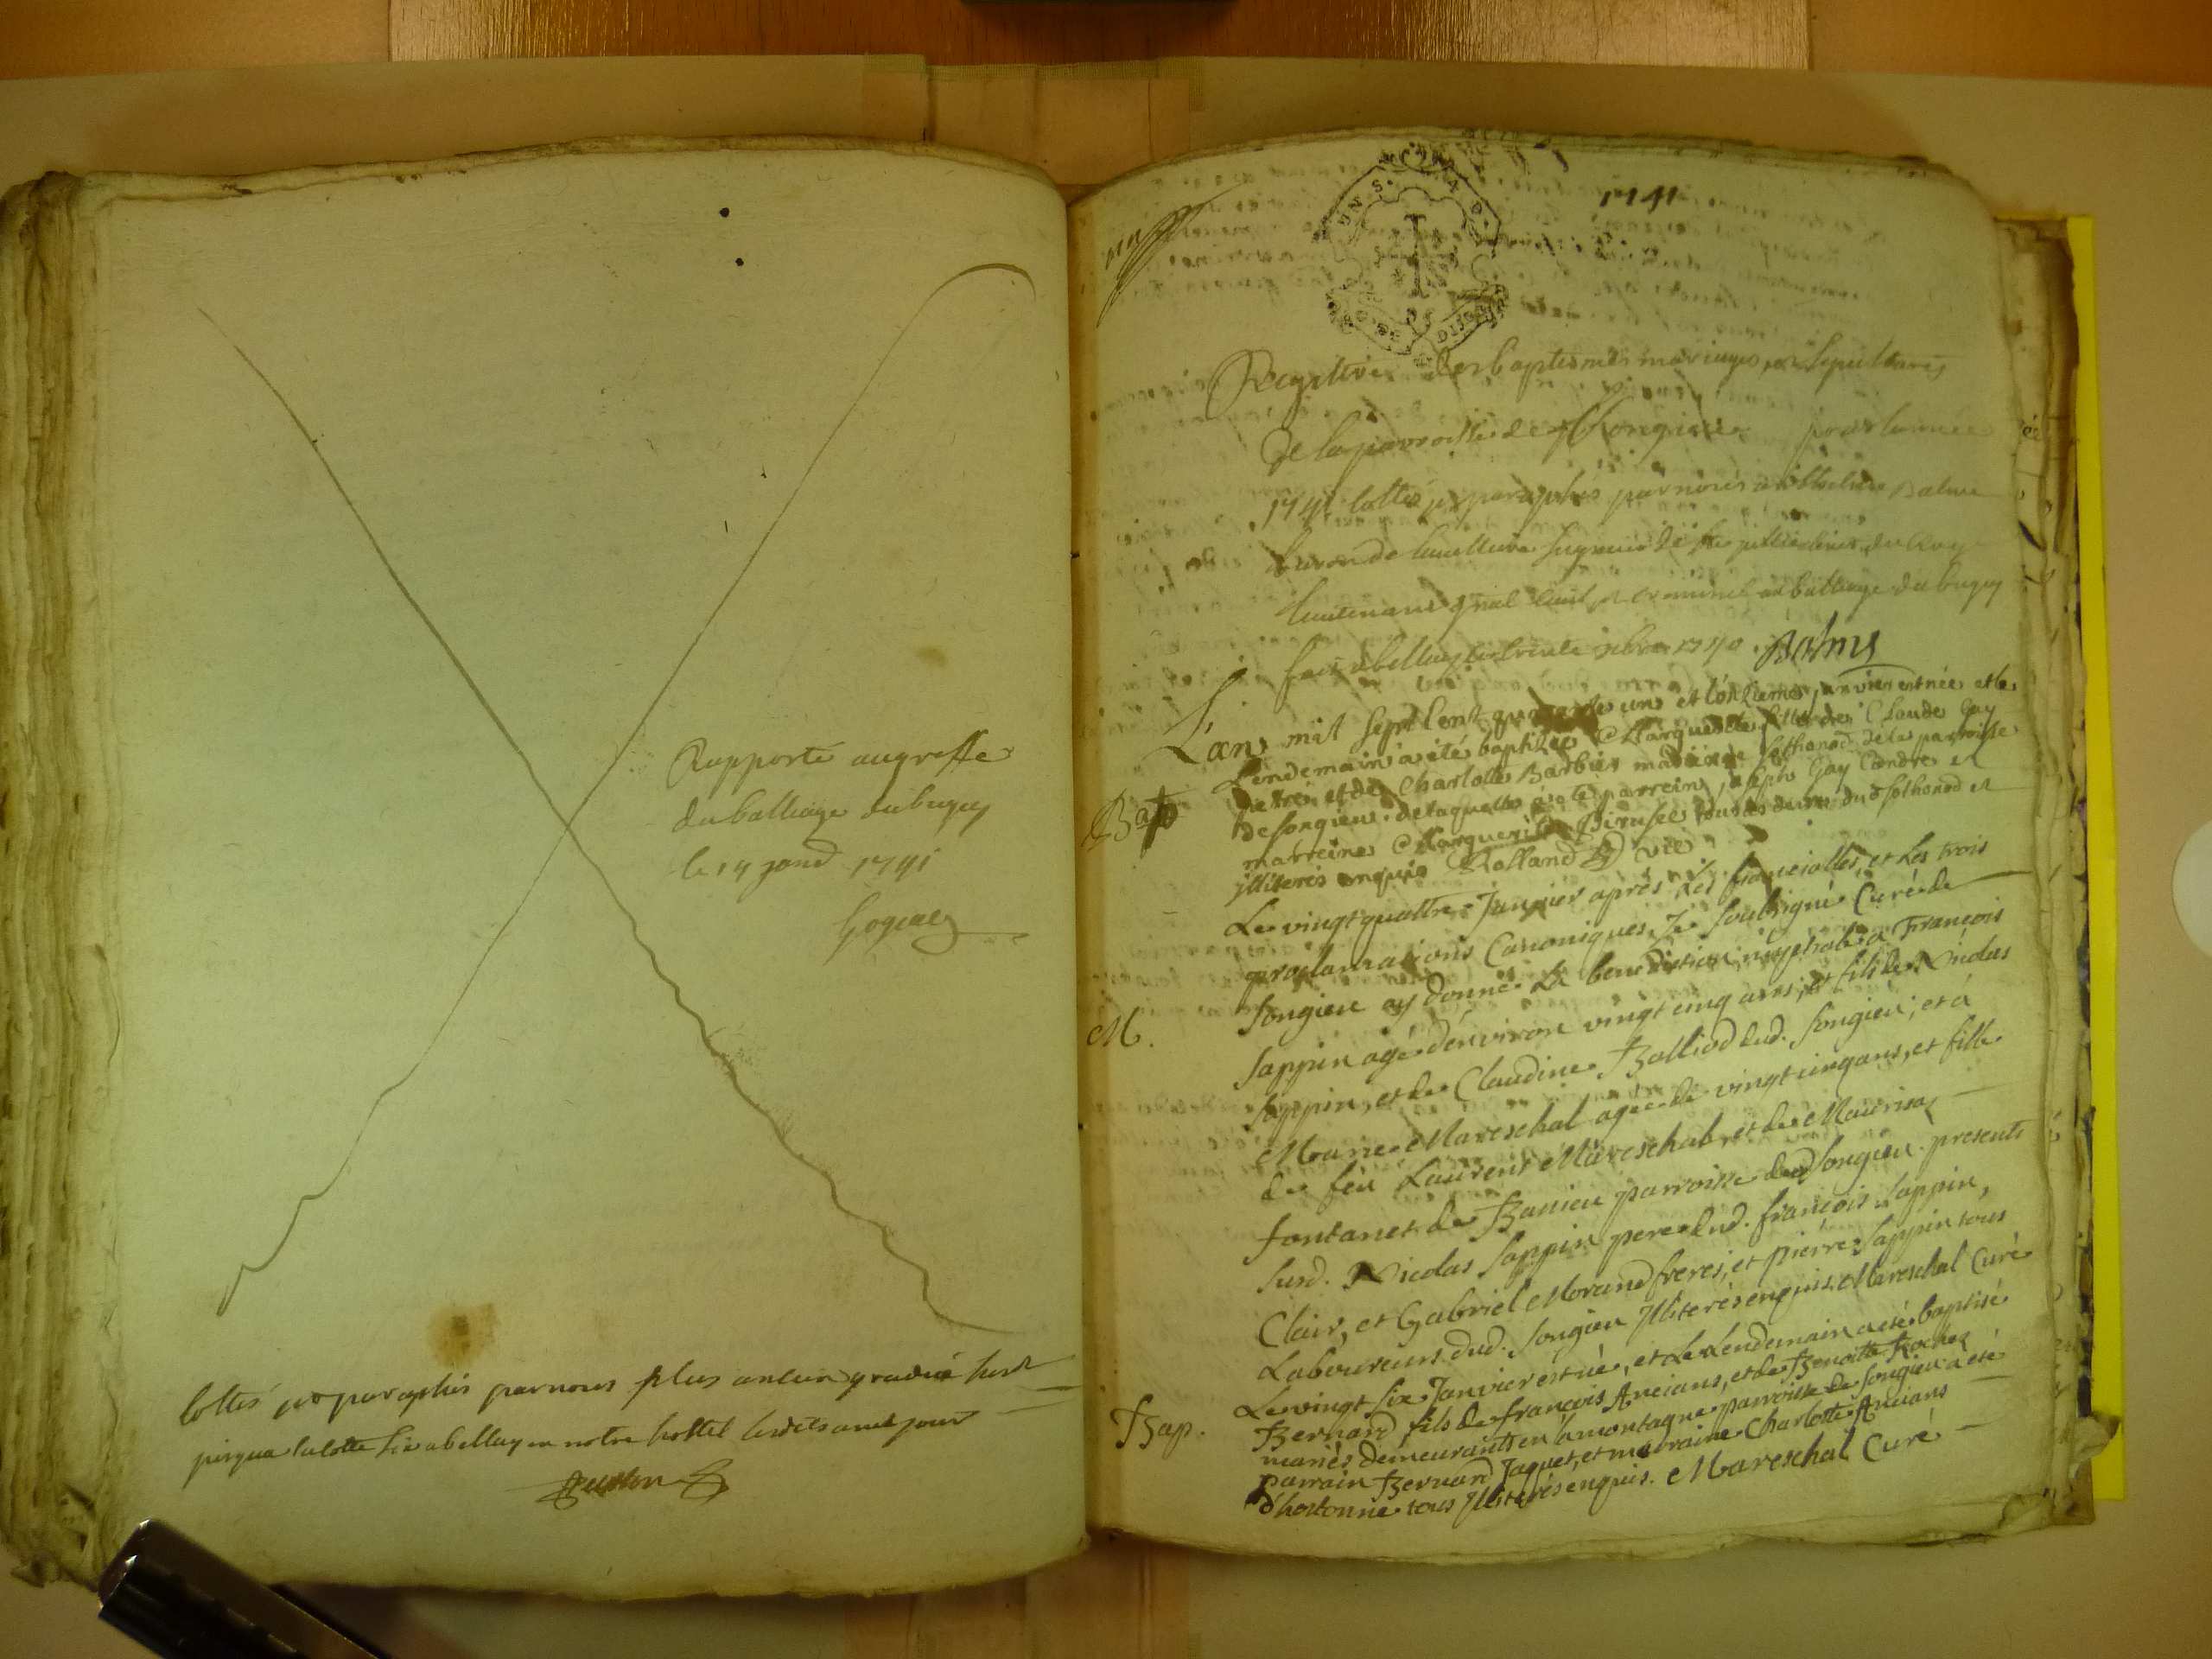 Rapporté au greffe
du balliage du bugey
le 14 janv 1741
cottés et paraphés par nous plus ancien gradué
jusqua la cotte Six a belley en notre hostel lesdits an et jour
1741
Registre des baptesmes mariages, et Sepultures
de la parroisse de Songieu pour lannée
1741 cottés et paraphés par nous
Seigneur de
Lieutenant gnal civil et criminel au balliage du bugey
fait a belley le trente xbre 1740 Balme
L'an mil Sept Cent quarante un et l'onzieme janvier est née et le
Lendemain a été baptisée Marguerite fille de Claude Gay
et de Charlotte Barbier mariés de Sothonod de la parroisse
de Songieu. de laquelle a été parrein, Joseph Gay et
marreine Marguerite tous deux dud Sothonod et
illiteres enquis Rolland vic
Bap
Le vingt quattre Janvier après les fiancialles, et les trois
proclamations Canoniques, Je Soubsigné Curé de
Songieu ay donné La benediction nuptiale a François
Sappin agé d'environ vingt cinq ans, et fils de Nicolas
M.
Sappin, et de Claudine Balliod dud. Songieu; et a
Marie Mareschal agée de vingt cinq ans, et fille
de feu Laurent Mareschal, et de Maurisa
fontanet de Banieu parroisse dud Songieu. presents
Susd. Nicolas Sappin pere dud. françois Sappin,
Clair, et Gabriel Morand freres, et pierre Sappin tous
Laboureurs dud. Songieu Illiterés enquis. Mareschal Curé
Le vingt Six Janvier est né, et Le Lendemain a eté baptisé
Bernard fils de françois Ancians, et de Benoite Rochez
Bap.
mariés demeurants en la montagne parroisse de Songieu a eté
parrain Bernard Jaquet, et marraine Charlotte Ancians
d'hostonne tous Illiterés enquis. Mareschal Curé